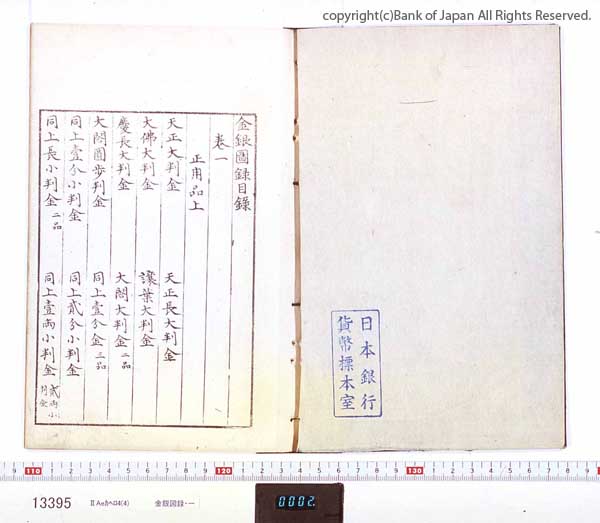 copyright(c)Bank of Japan All Rights Reserved.
金銀圖録目錄
卷一
正用品上
天正大判金
天正長大判金
大佛大判金
讓葉大判金
慶長大判金
大閤大判金 二品
大閤圓歩判金
同上壹分金 三品
同上壹分小判金
同上貳分小判金
同上長小判金 二品
同上壹兩小判金
日本銀行
貨幣標本室
110 1 2 3 4 5 6 7 8 9 120 1 2 3 4 5 6 7 8 9 130
13395
金銀図録・一
0002.